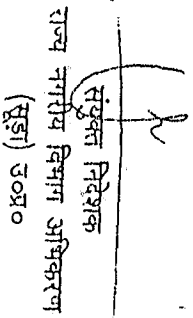 संयुक्त निदेशक
राज्य नगरीय विकास अभिकरण
(सूडा) उ०प्र०